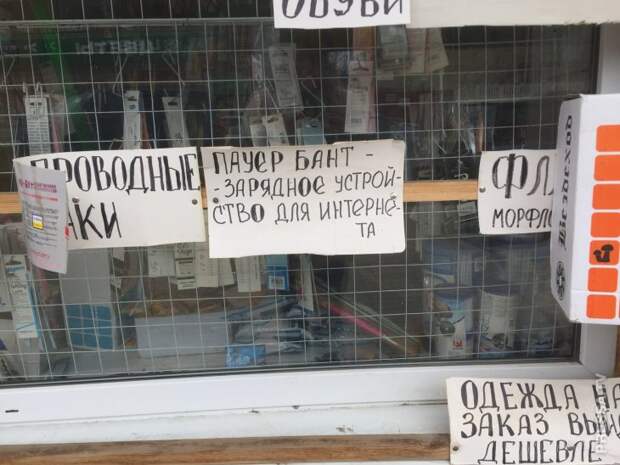 ОБУВИ
ПРОВОДНЫЕ
ПАУЕР БАНТ -
- ЗАРЯДНОЕ УСТРОЙ-
СТВО ДЛЯ ИНТЕРНЕ-
ТА
Вездеход
ОДЕЖДА НА
ЗАКАЗ
ДЕШЕВЛЕ